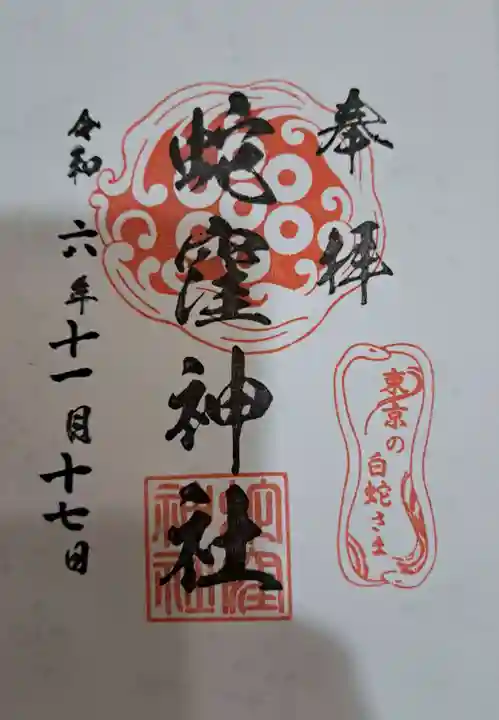 奉拝
蛇窪神社
東京の
白蛇さま
蛇窪
神社
令和六年十一月十七日